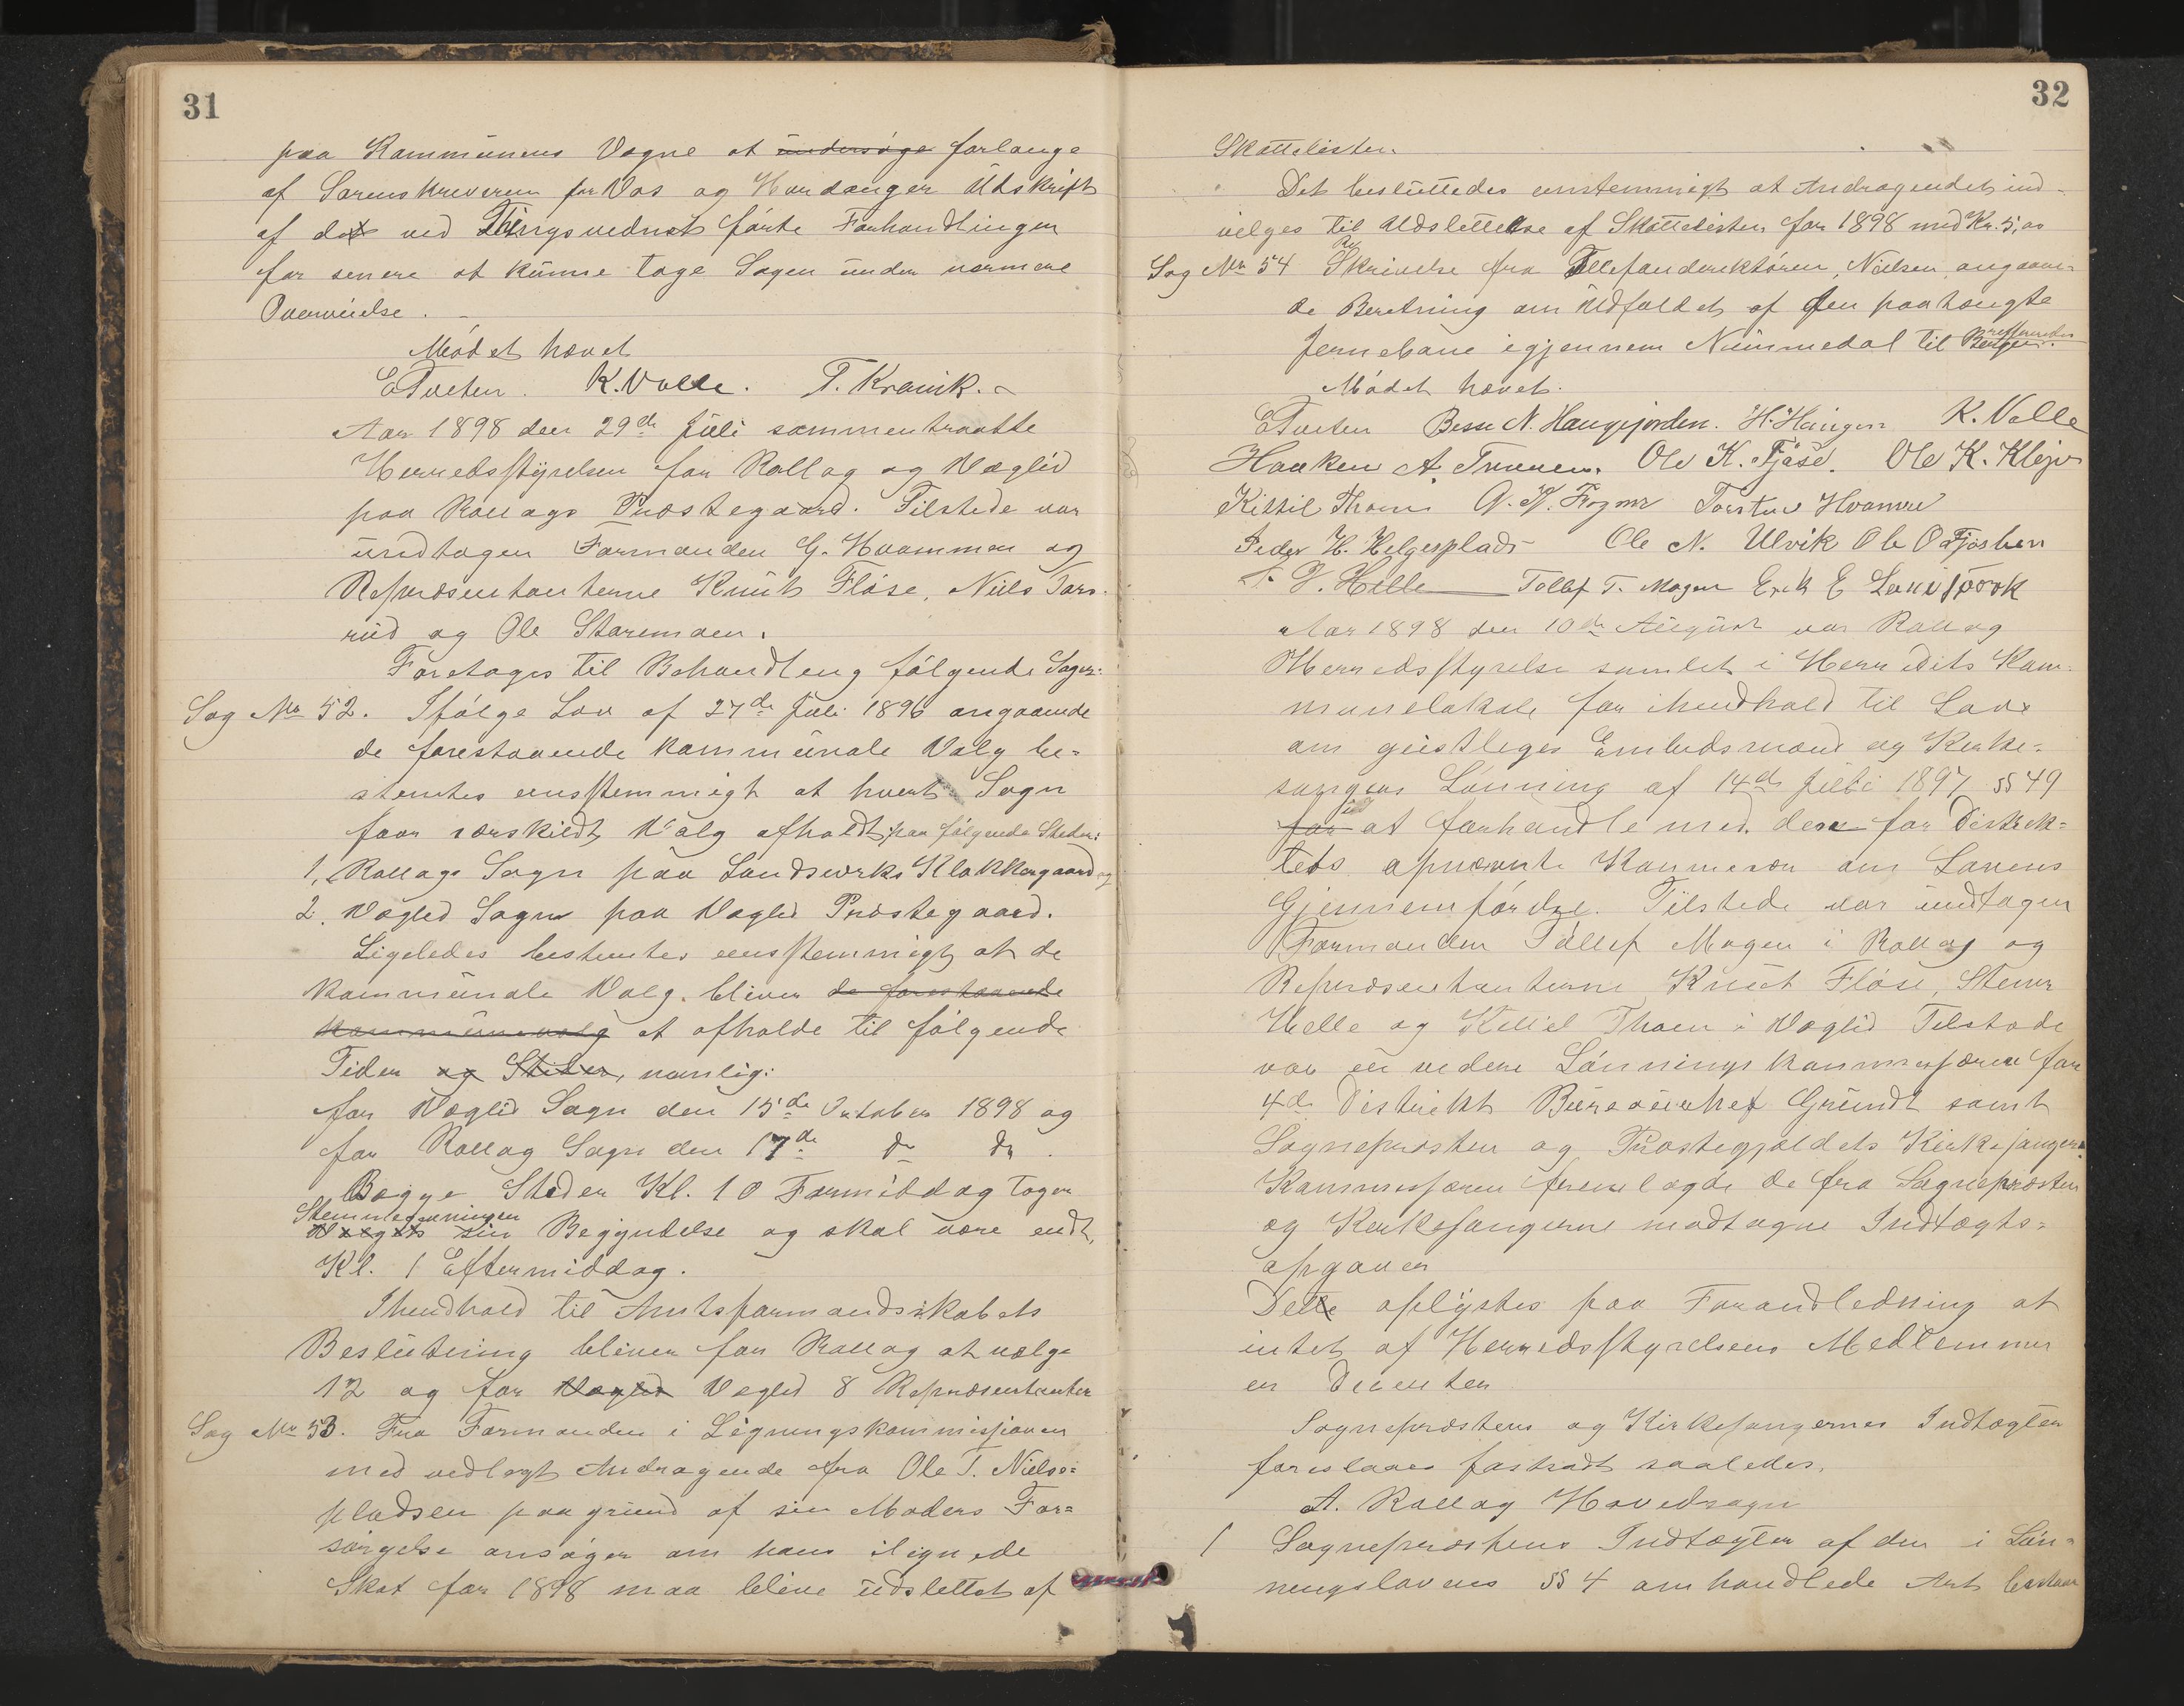 31
paa Kommunens Vegne at undersøge forlange
af Sorenskriveren for Vos og Hardanger Udskrift
af det ved Thingsvidnet førte Forhandlinger
for senere at kunne tage Sagen under nærmere
Overveielse. -
Mødet hævet
ETveten. K. Valle. T. Kravik.
Aar 1898 den 29de Juli sammentraatte
Herredsstyrelsen for Rollag og Væglid
paa Rollags Præstegaard. Tilstede var
undtagen Formanden G. Hvammen og
Repræsentanterne Knut Fløse, Niels Tors-
rud og Ole Staremoen.
Foretages til Behandling følgende Sager:
Sag No 52. Ifølge Lov af 27de Juli 1896 angaaende
de forestaaende kommunale Valg be-
stemtes eensstemmigt at hvert Sogn
faar særskildt Valg afholdt paa følgende Steder:
1, Rollags Sogn paa Landsverks Klokkergaard og
2. Væglid Sogn paa Væglid Præstegaard.
Ligeledes bestemtes eensstemmigt at de
kommunale Valg bliver de forestaaende
kommunevalg at afholde til følgende
Tider og Steder, nemlig:
for Væglid Sogn den 15de Oktober 1898 og
for Rollag Sogn den 17de do do.
Begge Steder Kl. 10 Formiddag tager
Stemmegivningen
Valget sin Begyndelse og skal være endt
Kl. 1 Eftermiddag.
Ihendhold til Amtsformandsskabets
Beslutning bliver for Rollag at vælge
12 og for Væglid Væglid 8 Repræsentanter
Sag No 53. Fra Formanden i Ligningskommissionen
med vedlagt Andragende fra Ole T. Niels-
pladsen paa grund af sin Moders For-
sørgelse ansøger om hans ilignede
Skat for 1898 maa blive udslettet af
32
Skattelisten.
Det besluttedes enstemmigt at Andragendet ind-
vilges til Udslettelse af Skattelisten for 1898 med Kr. 5,00
Sag No 54 Skrivelse fra Telefondirektøren, Nielsen, angaaen-
de Beretning om Udfaldet af den paatængte
Jernebane igjennem Nummedal til Bergen.
Mødet hævet.
ETveten Besse N. Haugjorden. H. Haugen K. Valle
Haaken A. Traaen. Ole K. Fjøse. Ole K. Kleiv
Kittil Thoen Torsten Hvammen
Peder H. Helgesplads Ole N. Ulvik Ole O Fjøshen
S. G. Helle Tollef T. Mogen Erik E
Aar 1898 den 10de August var Rollag
Herredsstyrelse samlet i Herredets Kom-
munelokale for ihendhold til Lov
om geistliges Embedsmænd og Kirke-
sangers Lønning af 14de Juli 1897 §§ 49
for at forhandle med den for Distrik-
tets opnævnte Kommisær om Lovens
Gjennemførelse. Tilstede var undtagen
Formanden Tollef Mogen i Rollag og
Repræsentanterne Knut Fløse, Stener
Helle og Kittel Thoen i Væglid Tilstede
var videre Lønningskommissæren for
4de Distrikt Bureauchef Grundt samt
Sognepræsten og Præstegjeldets Kirkesangere.
Kommissæren fremlagde de fra Sognepræsten
og Kirkesangerne modtagne Indtægts-
opgaver
Dette oplystes paa Forandledning at
intet af Herredsstyrelsens Medlemmer
er Docenten
Sognepræstens og Kirkesangernes Indtægter
foreslaaes fastsadt saaledes.
A. Rollag Hovedsogn
1 Sognepræstens Indtægter af den i Løn-
ningslovens §§ 4 omhandlede Art bestaar